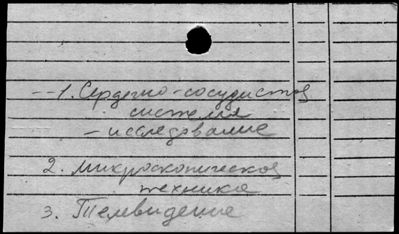 -- 1. Сердечно-сосудистая
система
- исследование
2. микроскопическая
техника
3. Телевидение